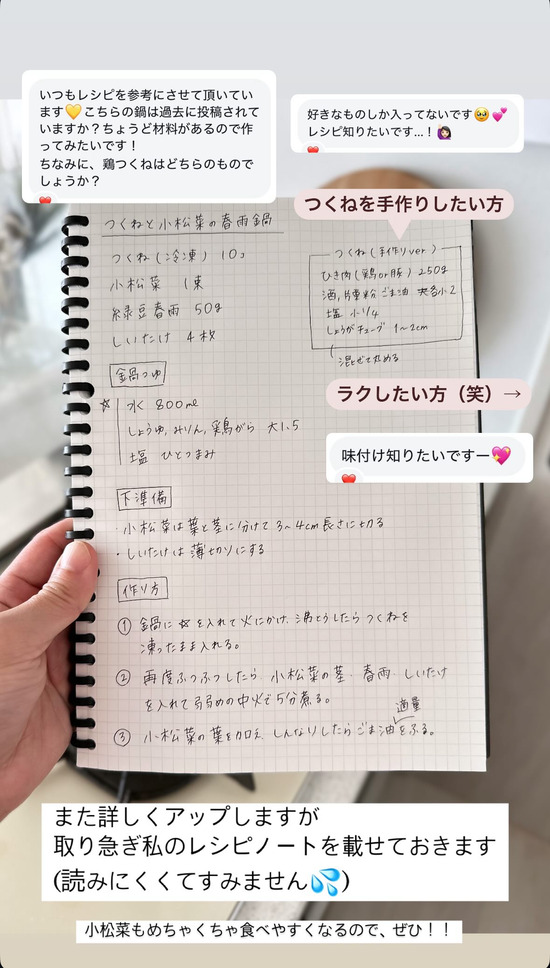 いつもレシピを参考にさせて頂いてい
ます💛こちらの鍋は過去に投稿されて
いますか？ちょうど材料があるので作
ってみたいです！
ちなみに、鶏つくねはどちらのもので
しょうか？
好きなものしか入ってないです🥹💕
レシピ知りたいです...！🙋🏻‍♀️
つくねを手作りしたい方
つくねと小松菜の春雨鍋
つくね(冷凍) 10コ
小松菜 1束
緑豆春雨 50g
しいたけ 4枚
つくね(手作りver)
ひき肉(鶏or豚) 250g
酒,片栗粉,ごま油 各小2
塩 小1/4
しょうがチューブ 1〜2cm
混ぜて丸める
ラクしたい方（笑）→
味付け知りたいですー💖
鍋つゆ
☆
水 800ml
しょうゆ,みりん,鶏がら 大1.5
塩 ひとつまみ
下準備
・小松菜は葉と茎に分けて3〜4cm長さに切る
・しいたけは薄切りにする
作り方
① 鍋に☆を入れて火にかけ、沸とうしたらつくねを
凍ったまま入れる。
② 再度ふつふつしたら、小松菜の茎、春雨、しいたけ
を入れて弱めの中火で5分煮る。
③ 小松菜の葉を加え、しんなりしたらごま油をふる。
適量
また詳しくアップしますが
取り急ぎ私のレシピノートを載せておきます
(読みにくくてすみません💦)
小松菜もめちゃくちゃ食べやすくなるので、ぜひ！！